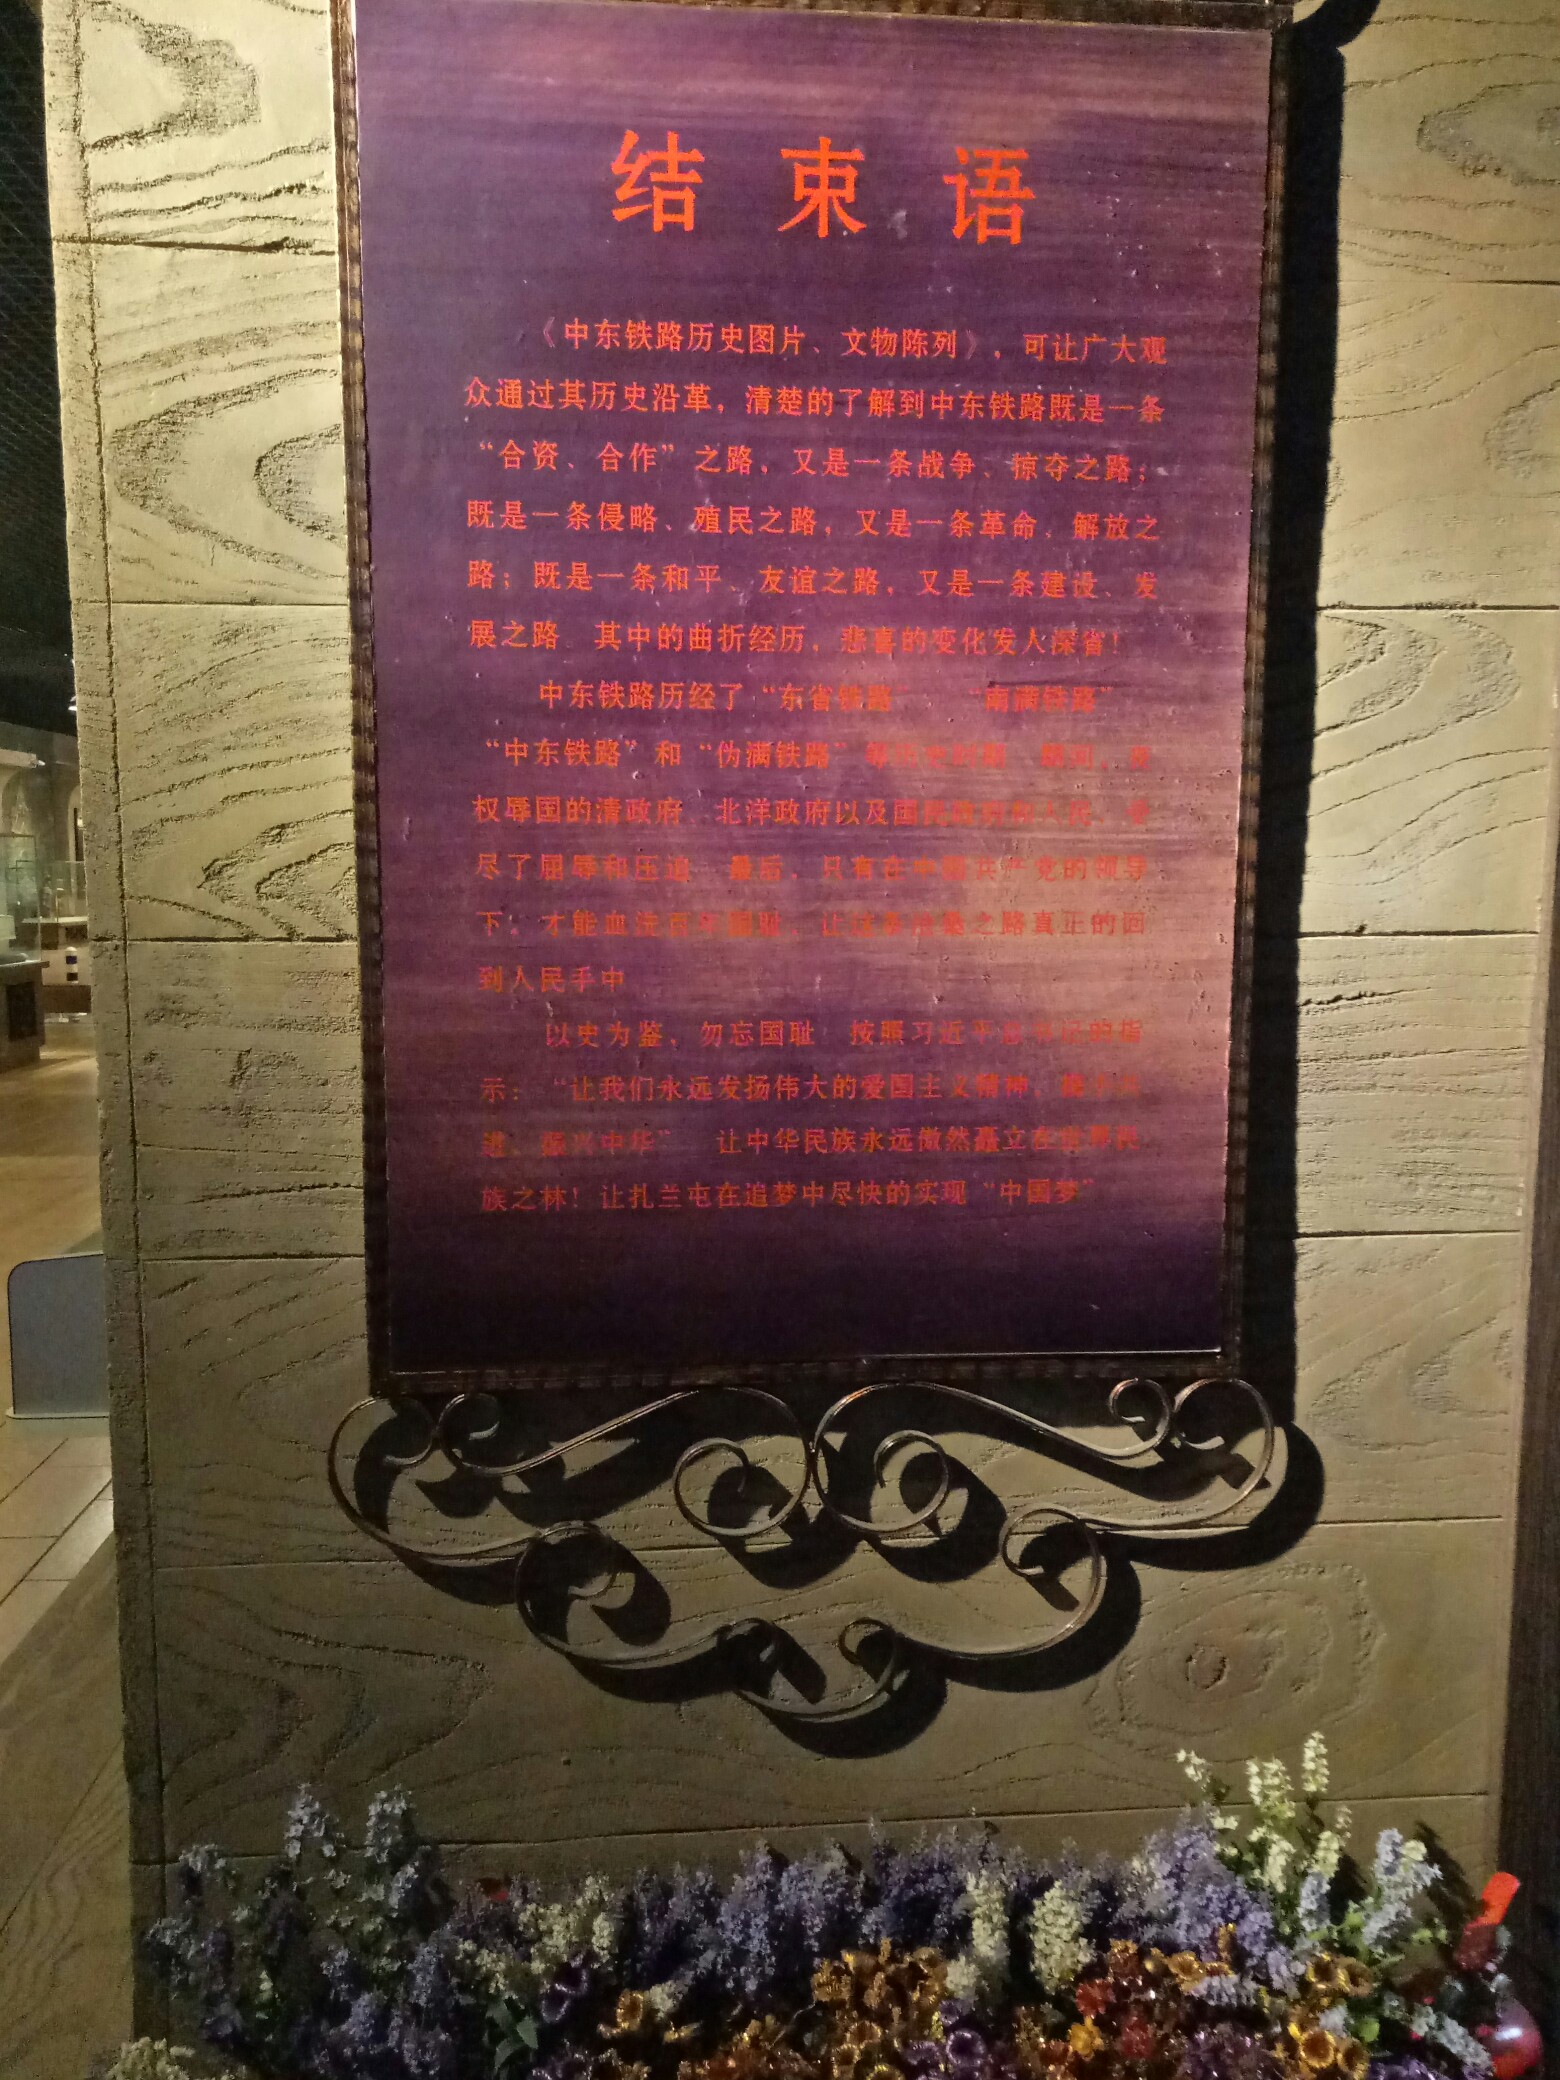 结束语
《中东铁路历史图片、文物陈列》，可让广大观
众通过其历史沿革，清楚的了解到中东铁路既是一条
“合资、合作”之路，又是一条战争、掠夺之路；
既是一条侵略、殖民之路，又是一条革命、解放之
路；既是一条和平、友谊之路，又是一条建设、发
展之路 其中的曲折经历，悲喜的变化发人深省！
中东铁路历经了“东省铁路” “南满铁路”
“中东铁路”和“伪满铁路”等历史时期 期间，丧
权辱国的清政府 北洋政府以及国民政府和人民，受
尽了屈辱和压迫 最后，只有在中国共产党的领导
下，才能血洗百年国耻，让这条沧桑之路真正的回
到人民手中
以史为鉴，勿忘国耻！按照习近平总书记的指
示：“让我们永远发扬伟大的爱国主义精神，
进，振兴中华” 让中华民族永远傲然矗立在世界民
族之林！让扎兰屯在追梦中尽快的实现“中国梦”